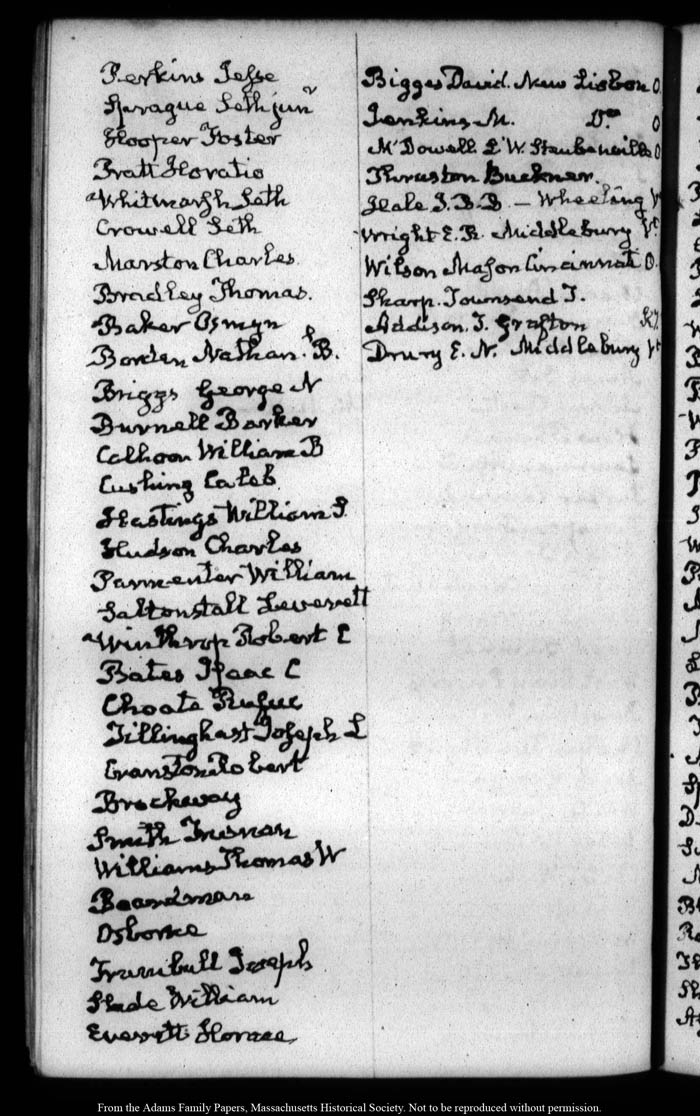 Perkins Jesse
Sprague Seth junr
Hooper Foster
Pratt Horatio
Whitmarsh Seth
Crowell Seth
Marston Charles.
Bradley Thomas.
Baker Osmyn
Borden Nathan. B.
Briggs George N
Burnell Barker
Calhoon William B
Cushing Caleb
Hastings William S.
Hudson Charles
Parmenter William
Saltonstall Leverett
Winthrop Robert C
Bates Isaac C
Choate Rufus
Tillinghast Joseph L
Cranston Robert
Brockway
Smith Truman
Williams Thomas W
Boardman
Osborne
Trumbull Joseph
Slade William
Everett Horace
Biggs David. New Lisbon O.
Jenkins M. Do O
McDowell L W. Steubenville O
Thruston Buckner.
Wheeling
Wright E. R. Middlebury Vt.
Wilson Mason Cincinnati O.
Sharp. Townsend T.
Addison. J. Grafton
Drury E. N. Middlebury Vt
From the Adams Family Papers, Massachusetts Historical Society. Not to be reproduced without permission.